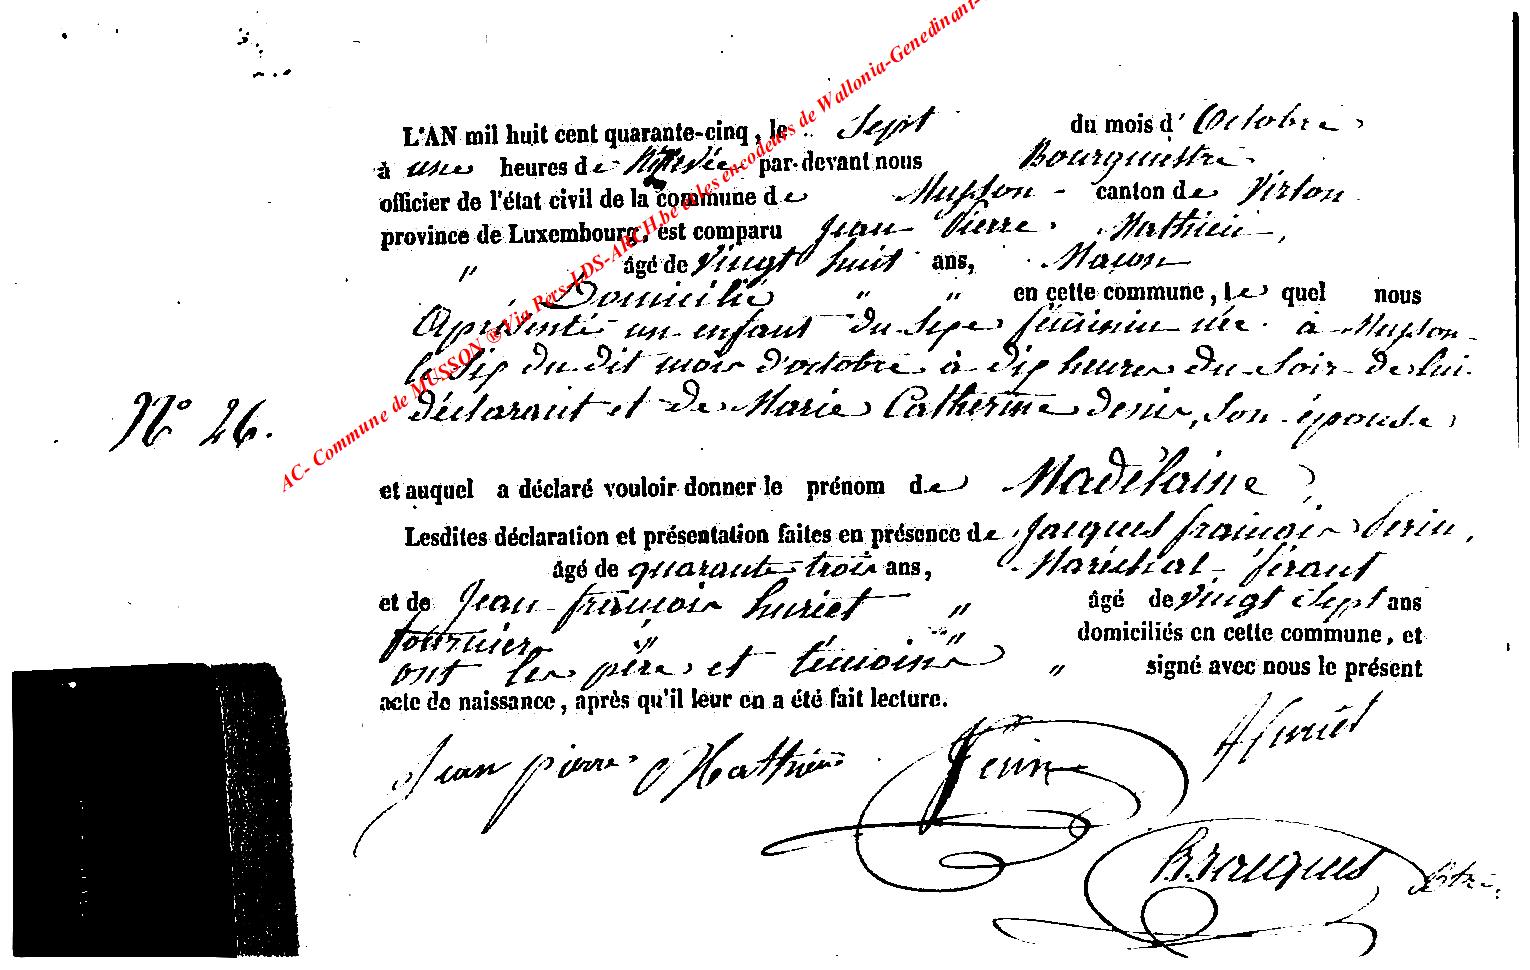 L'AN mil huit cent quarante-cinq, le Sept du mois d' Octobre
à une heures de Rélevée par-devant nous Bourgmestre
officier de l'état civil de la commune de Musson canton de Virton
province de Luxembourg, est comparu Jean Pierre Mathieu,
" âgé de Vingt huit ans, Maçon
Domicilié " " en cette commune, le quel nous
Aprésenté un enfant du Sexe féminin née à Musson
le Six du dit mois d'octobre à dix heures du Soir de lui
N° 26. déclarant et de Marie Catherine denis, Son épouse
et auquel a déclaré vouloir donner le prénom de Madelaine
Lesdites déclaration et présentation faites en présence de Jacques françois
âgé de quarante trois ans, Maréchal férant
et de Jean françois huriet " âgé de Vingt Sept ans
fournier " " domiciliés en cette commune, et
ont les père et témoins " signé avec nous le présent
acte de naissance, après qu'il leur en a été fait lecture.
Jean pierre Mathieu huriet
AC- Commune de MUSSON ® Via Pers-LDS-ARCH.be et les encodeurs de Wallonia-Genedinant-